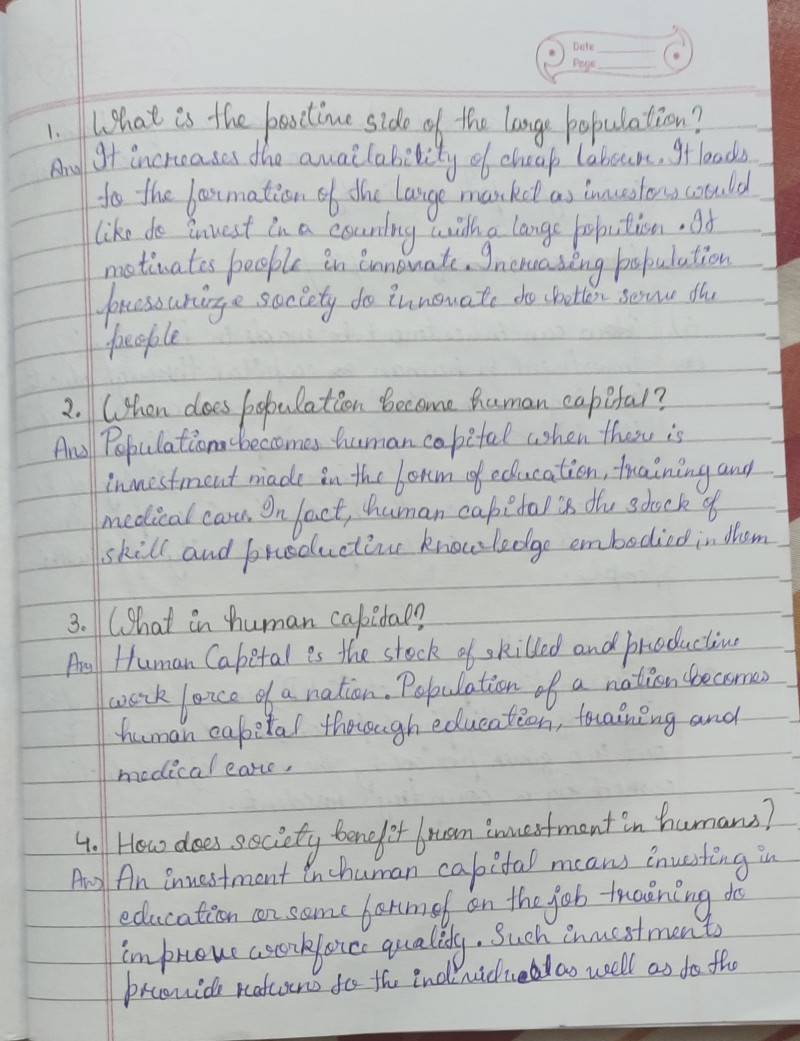 Date
Page
1. What is the positive side of the large population?
Ans It increases the availability of cheap labour. It leads
to the formation of the large market as investors would
like to invest in a country with a large popution. It
motivates people in innovate. Increasing population
pressurize society to innovate to better serve the
people
2. When does population become human capital?
Ans Population becomes human capital when there is
investment made in the form of education, training and
medical care. In fact, human capital is the stock of
skill and productive knowledge embodied in them
3. What in human capital?
Ans Human Capital is the stock of skilled and productive
work force of a nation. Population of a nation becomes
human capital through education, training and
medical care.
4. How does society benefit from investment in humans?
Ans An investment in human capital means investing in
education or some form of on the job training to
improve workforce quality. Such investments
provide returns to the individual as well as to the